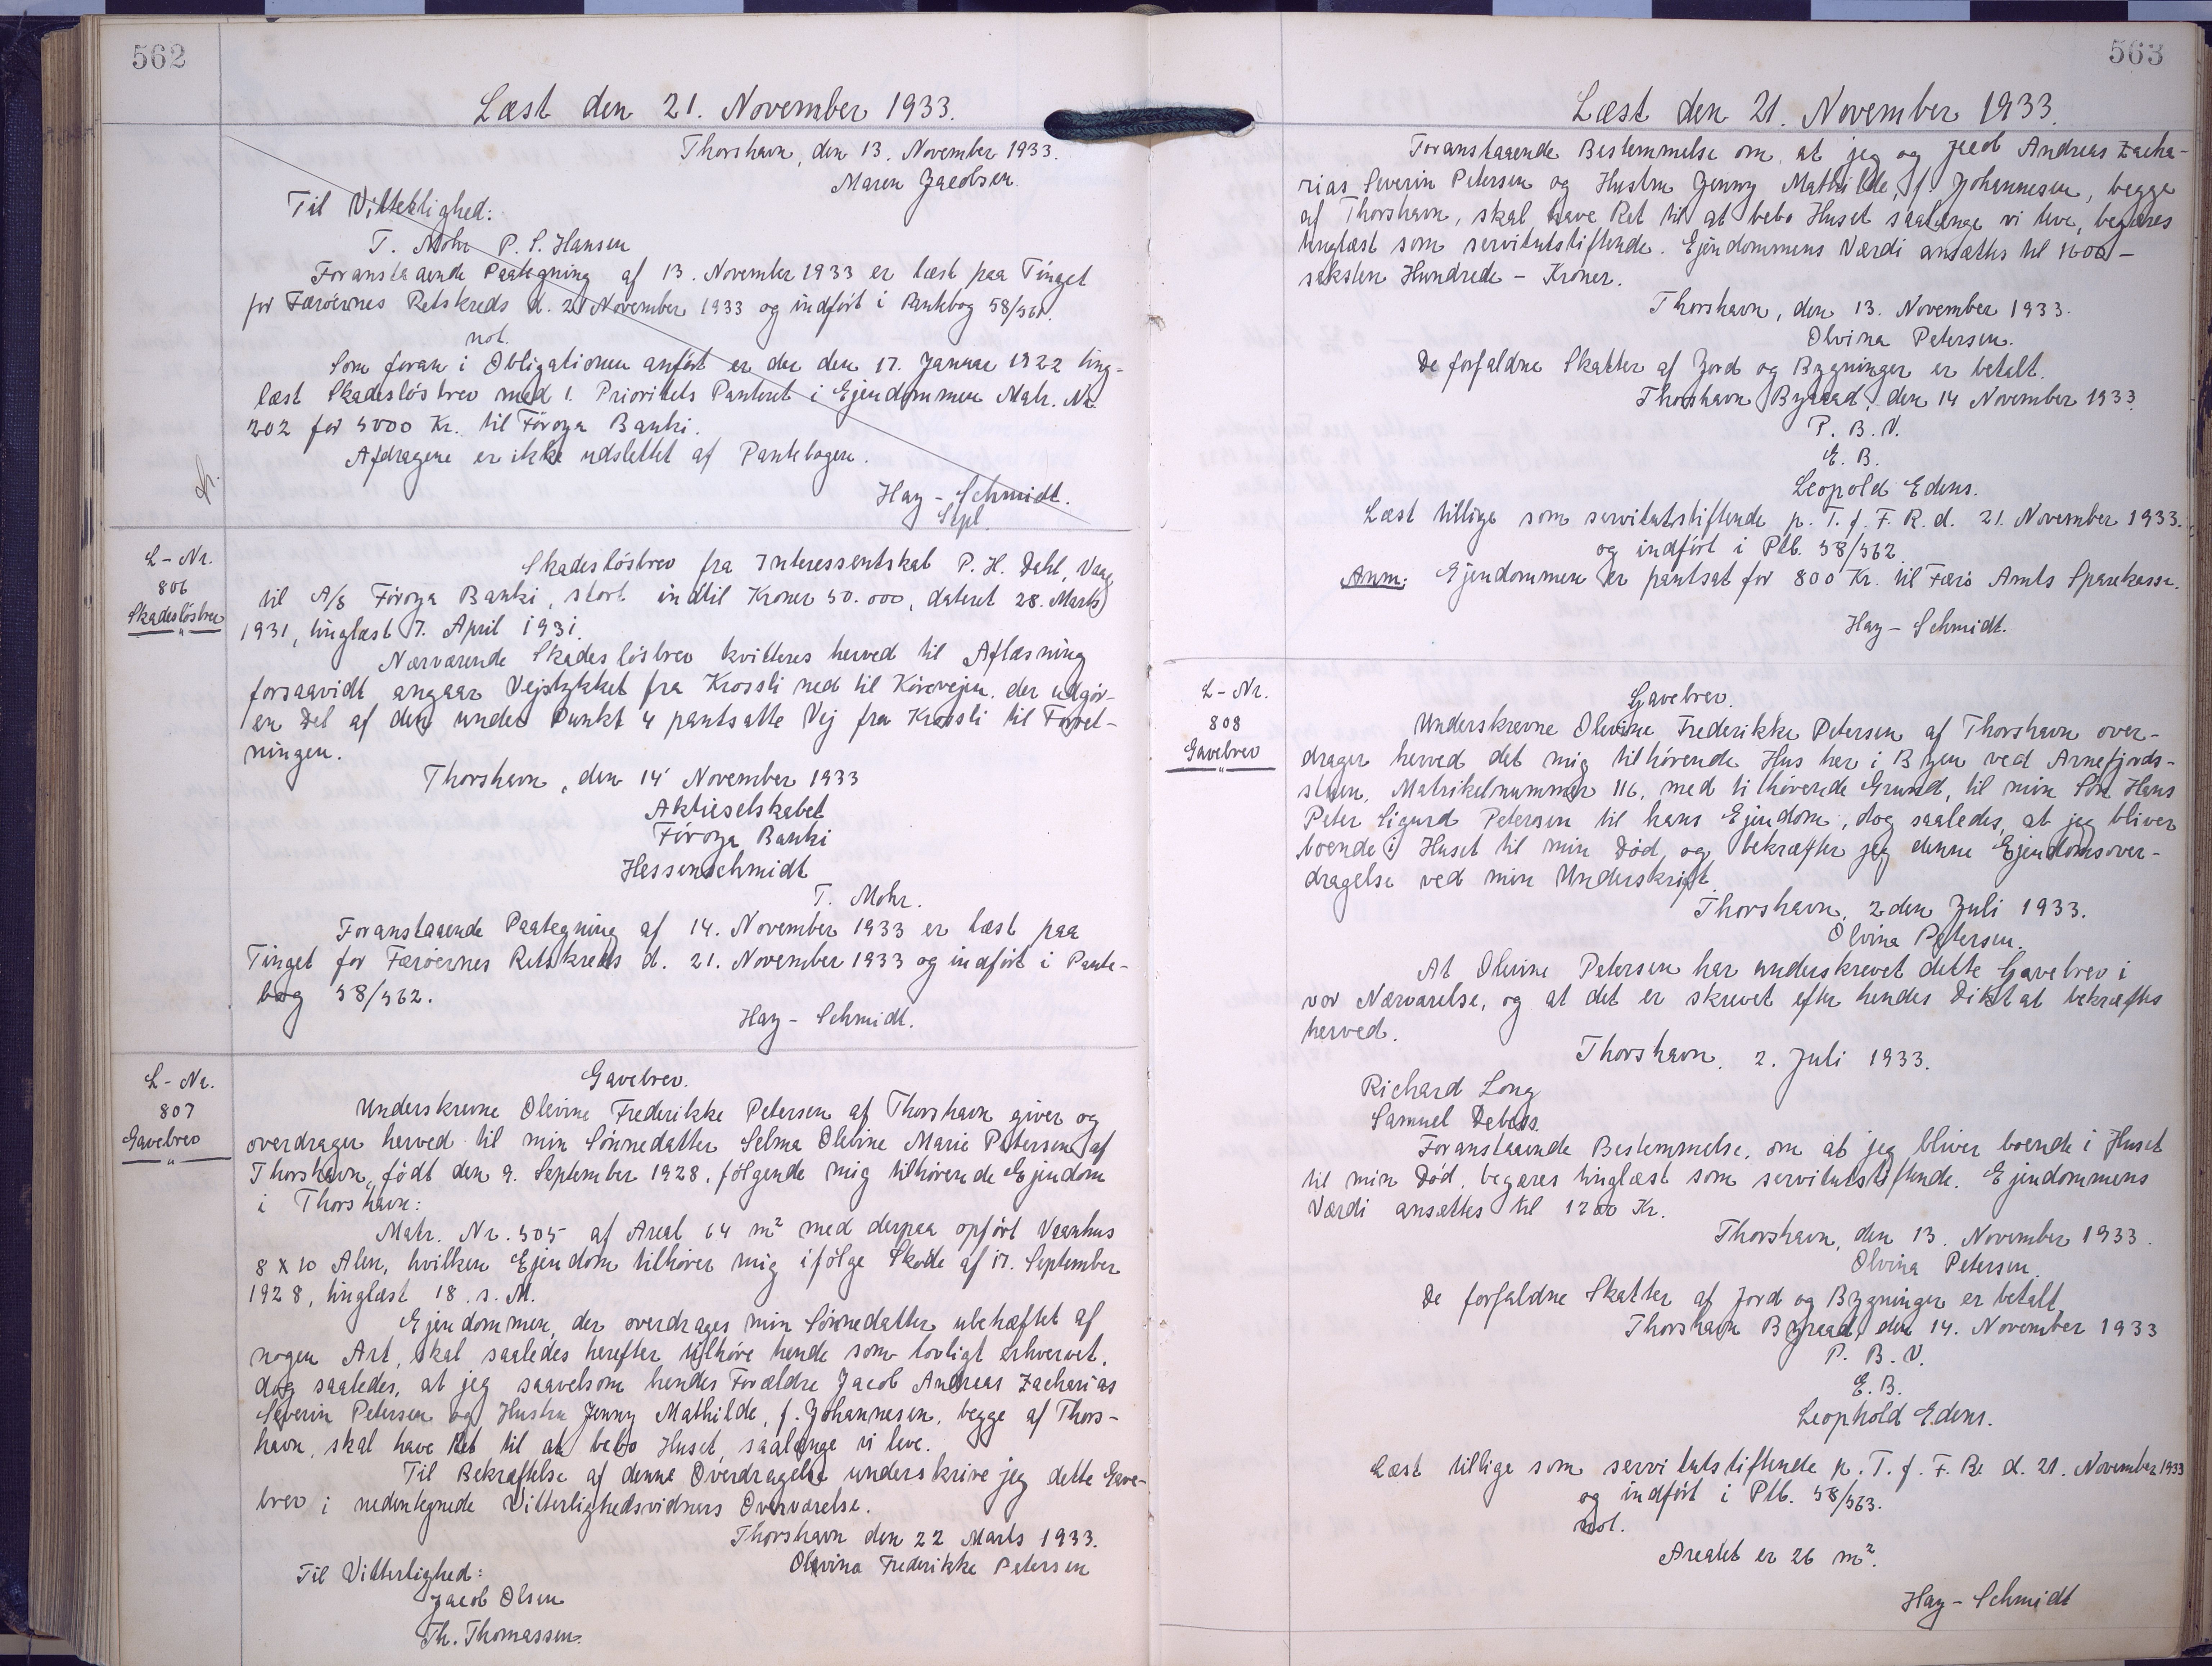 562
Læst den 21. November 1933.
Thorshavn, den 13. November 1933.
Maren Jacobsen.
Til Vitterlighed:
T. Mohr P. S. Hansen
Foranstaaende Paategning af 13. November 1933 er læst paa Tinget
for Færøernes Retskreds d. 21 November 1933 og indført i Pantebog 58/561.
not.
Som foran i Obligationen anført er der den 17. Januar 1922 ting-
læst Skadesløsbrev med 1. Prioritets Panteret i Ejendommen Matr. Nr.
202 for 5000 Kr. til Föroya Banki.
Afdragene er ikke udslettet af Pantebogen.
Hay-Schmidt.
L-Nr.
806
Skadesløsbrev
Skadesløsbrev fra Interessentskab P. H. Dahl, Vaag
til A/S Föroya Banki, stort indtil Kroner 50.000, dateret 28. Marts
1931, tinglæst 7. April 1931.
Nærværende Skadesløsbrev kvitteres herved til Aflæsning
forsaavidt angaar Vejstykket fra Krossli ned til Kørevejen, der udgør
en Del af den under Punkt 4 pantsatte Vej fra Krossli til Forret-
ningen.
Thorshavn, den 14 November 1933
Aktieselskabet
Föroya Banki
Hessenschmidt
T. Mohr.
Foranstaaende Paategning af 14. November 1933 er læst paa
Tinget for Færøernes Retskreds d. 21. November 1933 og indført i Pante-
bog 58/562.
Hay-Schmidt.
L-Nr.
807
Gavebrev
Gavebrev.
Underskrevne Olevine Frederikke Petersen af Thorshavn giver og
overdrager herved til min Sønnedatter Selma Olevine Marie Petersen af
Thorshavn, født den 9. September 1928, følgende mig tilhørende Ejendom
i Thorshavn:
Matr. Nr. 505 af Areal 64 m² med derpaa opført Vaanhus
8 x 10 Alen, hvilken Ejendom tilhører mig ifølge Skøde af 17. September
1928, tinglæst 18. s. M.
Ejendommen, der overdrages min Sønnedatter ubehæftet af
nogen Art, skal saaledes herefter tilhøre hende som lovligt erhvervet,
dog saaledes, at jeg saavelsom hendes Forældre Jacob Andreas Zacharias
Severin Petersen og Hustru Jenny Mathilde, f. Johannesen, begge af Thors-
havn, skal have Ret til at bebo Huset, saalænge vi leve.
Til Bekræftelse af denne Overdragelse underskrive jeg dette Gave-
brev i nedentegnede Vitterlighedsvidners Overværelse.
Thorshavn den 22 Marts 1933.
Olevina Frederikke Petersen
Til Vitterlighed:
Jacob Olsen
Th. Thomassen.
563
Læst den 21. November 1933.
Foranstaaende Bestemmelse om, at jeg og Jacob Andreas Zacha-
rias Severin Petersen og Hustru Jenny Mathilde, f. Johannesen, begge
af Thorshavn, skal have Ret til at bebo Huset saalænge vi leve, begæres
tinglæst som servitutstiftende. Ejendommens Værdi ansættes til 1600 -
seksten Hundrede - Kroner.
Thorshavn, den 13. November 1933.
Olvina Petersen.
De forfaldne Skatter af Jord og Bygninger er betalt.
Thorshavn Byraad, den 14 November 1933.
P. B. V.
E. B.
Leopold Edens.
Læst tillige som servitutstiftende p. T. f. F. R. d. 21. November 1933.
og indført i Ptb. 58/562.
Anm: Ejendommen er pantsat for 800 Kr. til Færø Amts Sparekasse.
Hay-Schmidt.
L-Nr.
808
Gavebrev
Gavebrev.
Underskrevne Olevine Frederikke Petersen af Thorshavn over-
drager herved det mig tilhørende Hus her i Byen ved Arnefjords-
stuen, Matrikelnummer 116, med tilhørende Grund, til min Søn Hans
Peter Sigurd Petersen til hans Ejendom, dog saaledes, at jeg bliver
boende i Huset til min Død, og bekræfter jeg denne Ejendomsover-
dragelse ved min Underskrift.
Thorshavn, 2den Juli 1933.
Olvina Petersen.
At Olevine Petersen har underskrevet dette Gavebrev i
vor Nærværelse, og at det er skrevet efter hendes Diktat bekræftes
herved.
Thorshavn, 2. Juli 1933.
Richard Long
Samuel Debess.
Foranstaaende Bestemmelse, om at jeg bliver boende i Huset
til min Død, begæres tinglæst som servitutstiftende. Ejendommens
Værdi ansættes til 1200 Kr.
Thorshavn, den 13. November 1933.
Olvina Petersen.
De forfaldne Skatter af Jord og Bygninger er betalt,
Thorshavn Byraad, den 14. November 1933
P. B. V.
E. B.
Leophold Edens.
Læst tillige som servitutstiftende p. T. f. F. R. d. 21. November 1933
og indført i Ptb. 58/563.
not.
Arealet er 26 m².
Hay-Schmidt